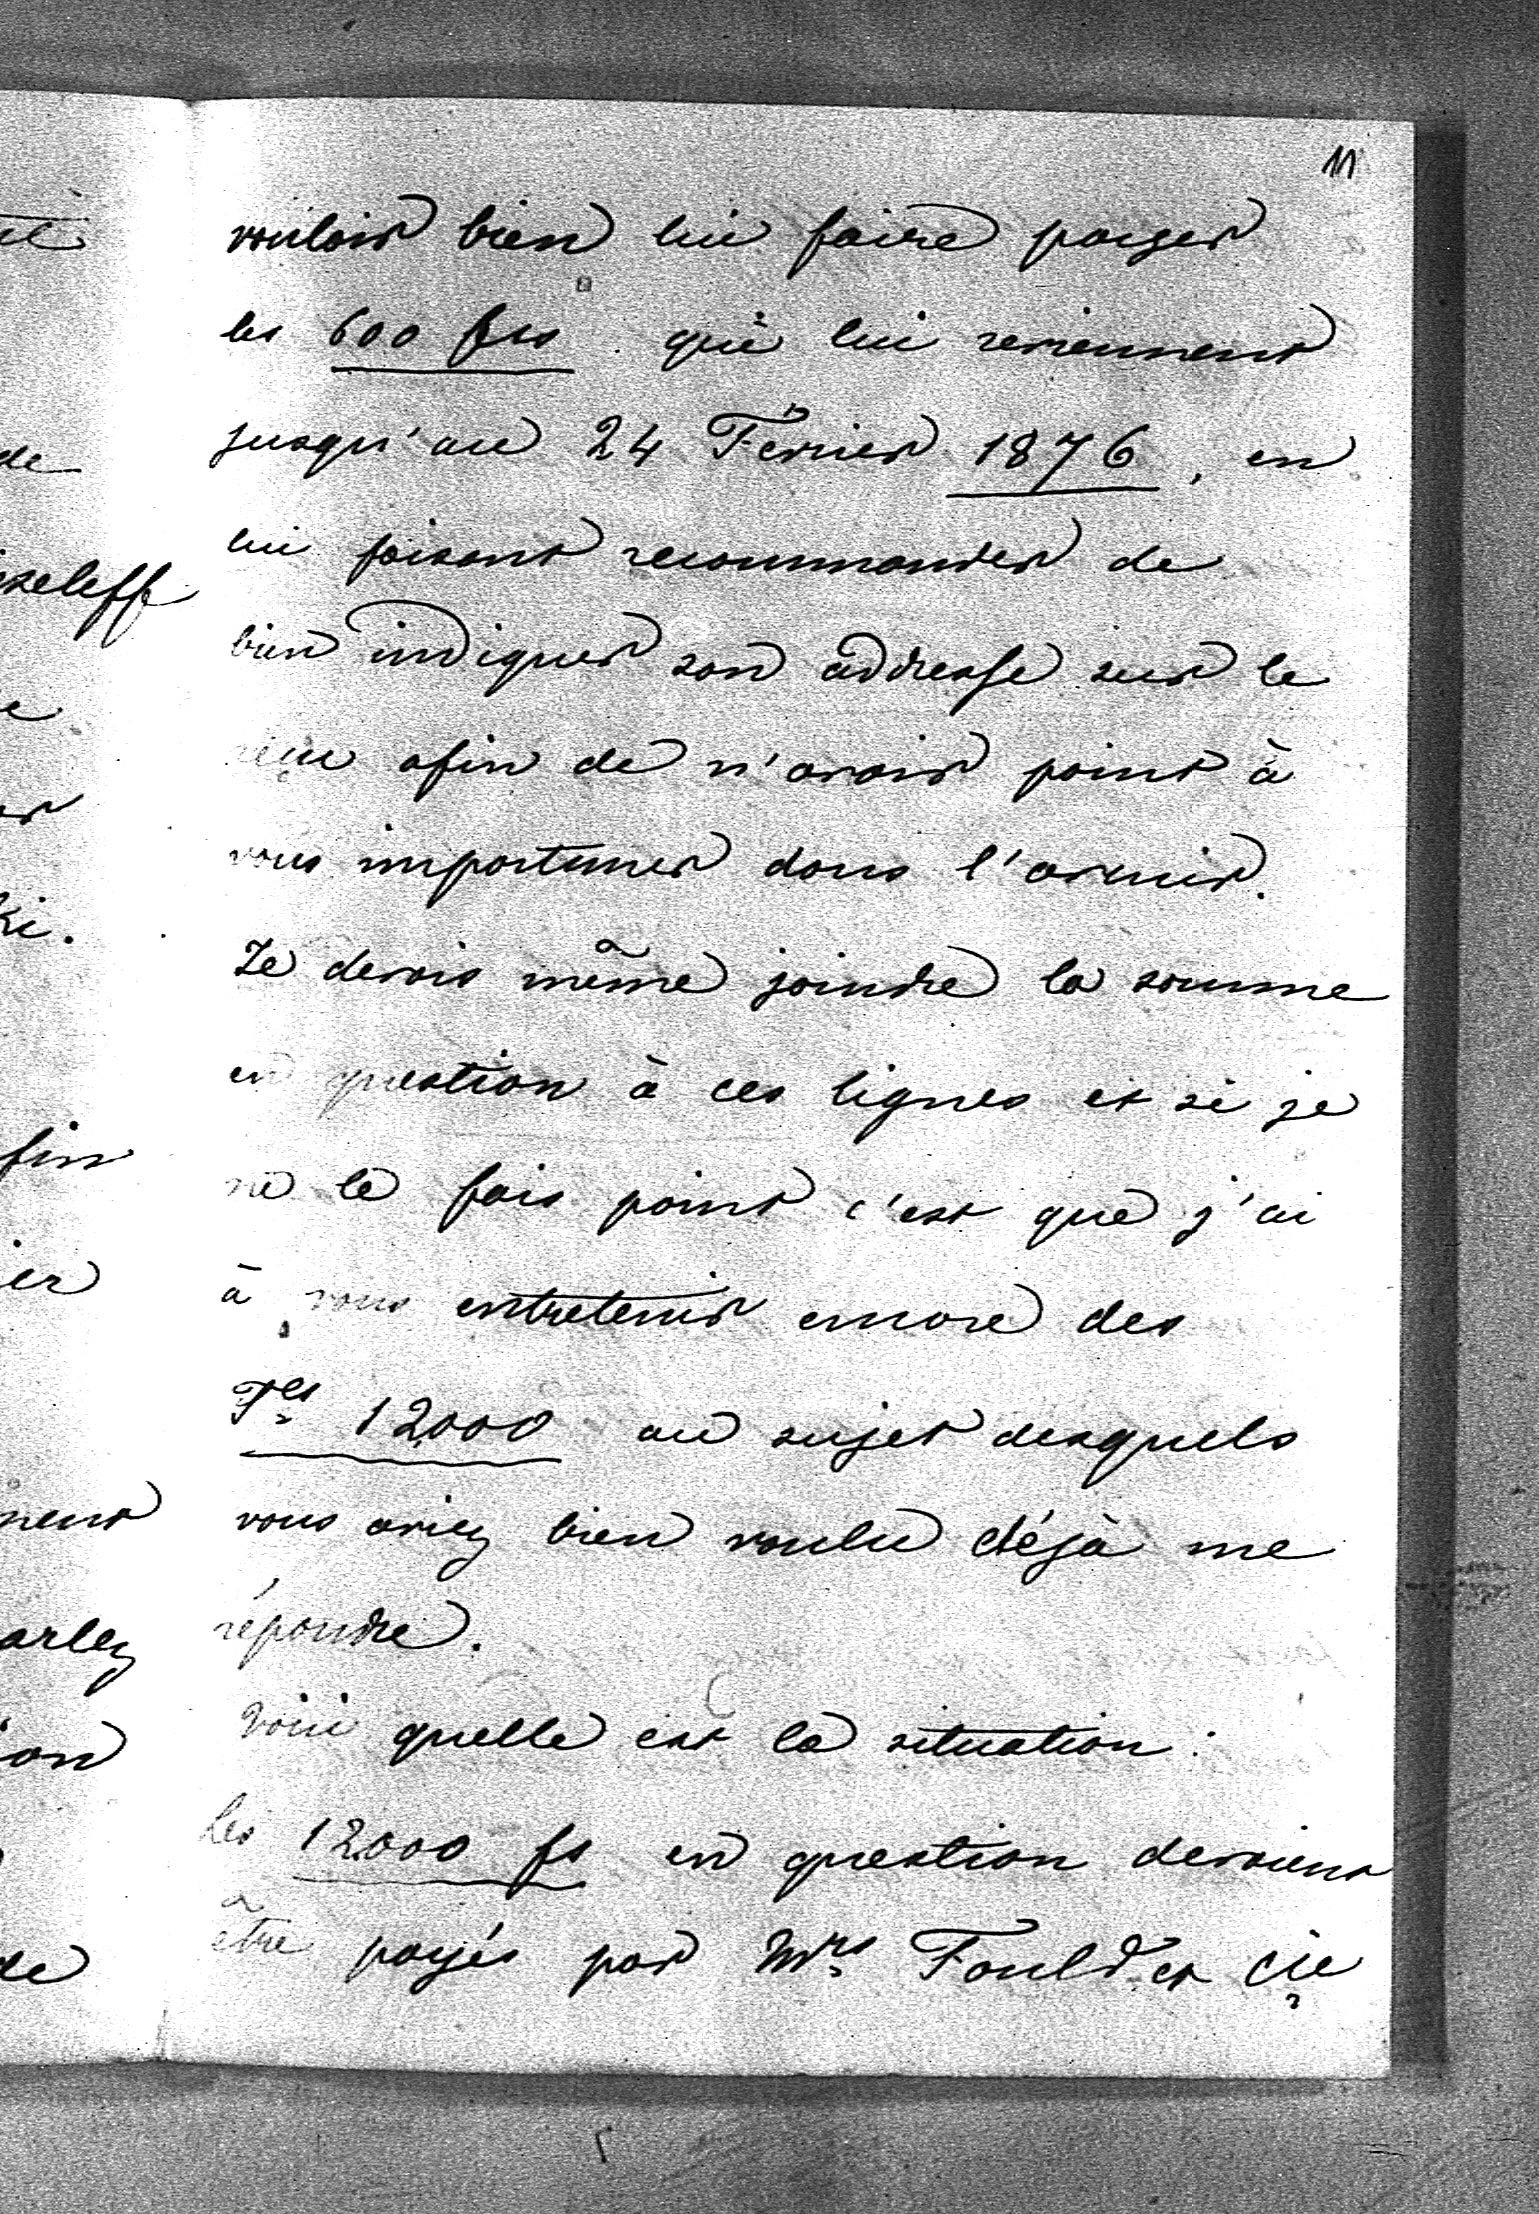 11
vouloir bien lui faire payer
les 600 frs qui lui reviennent
jusqu'au 24 Février 1876, en
lui faisant recommander de
bien indiquer son addresse sur le
reçu afin de n'avoir point à
vous importuner dans l'avenir.
Je devais même joindre la somme
en question à ces lignes et si je
ne le fais point c'est que j'ai
à vous entretenir encore des
Fcs 12000 au sujet desquels
vous aviez bien voulu déjà me
répondre.
Voici quelle est la situation:
Les 12000 fs en question devaient
être payés par Mrs Fould et Cie